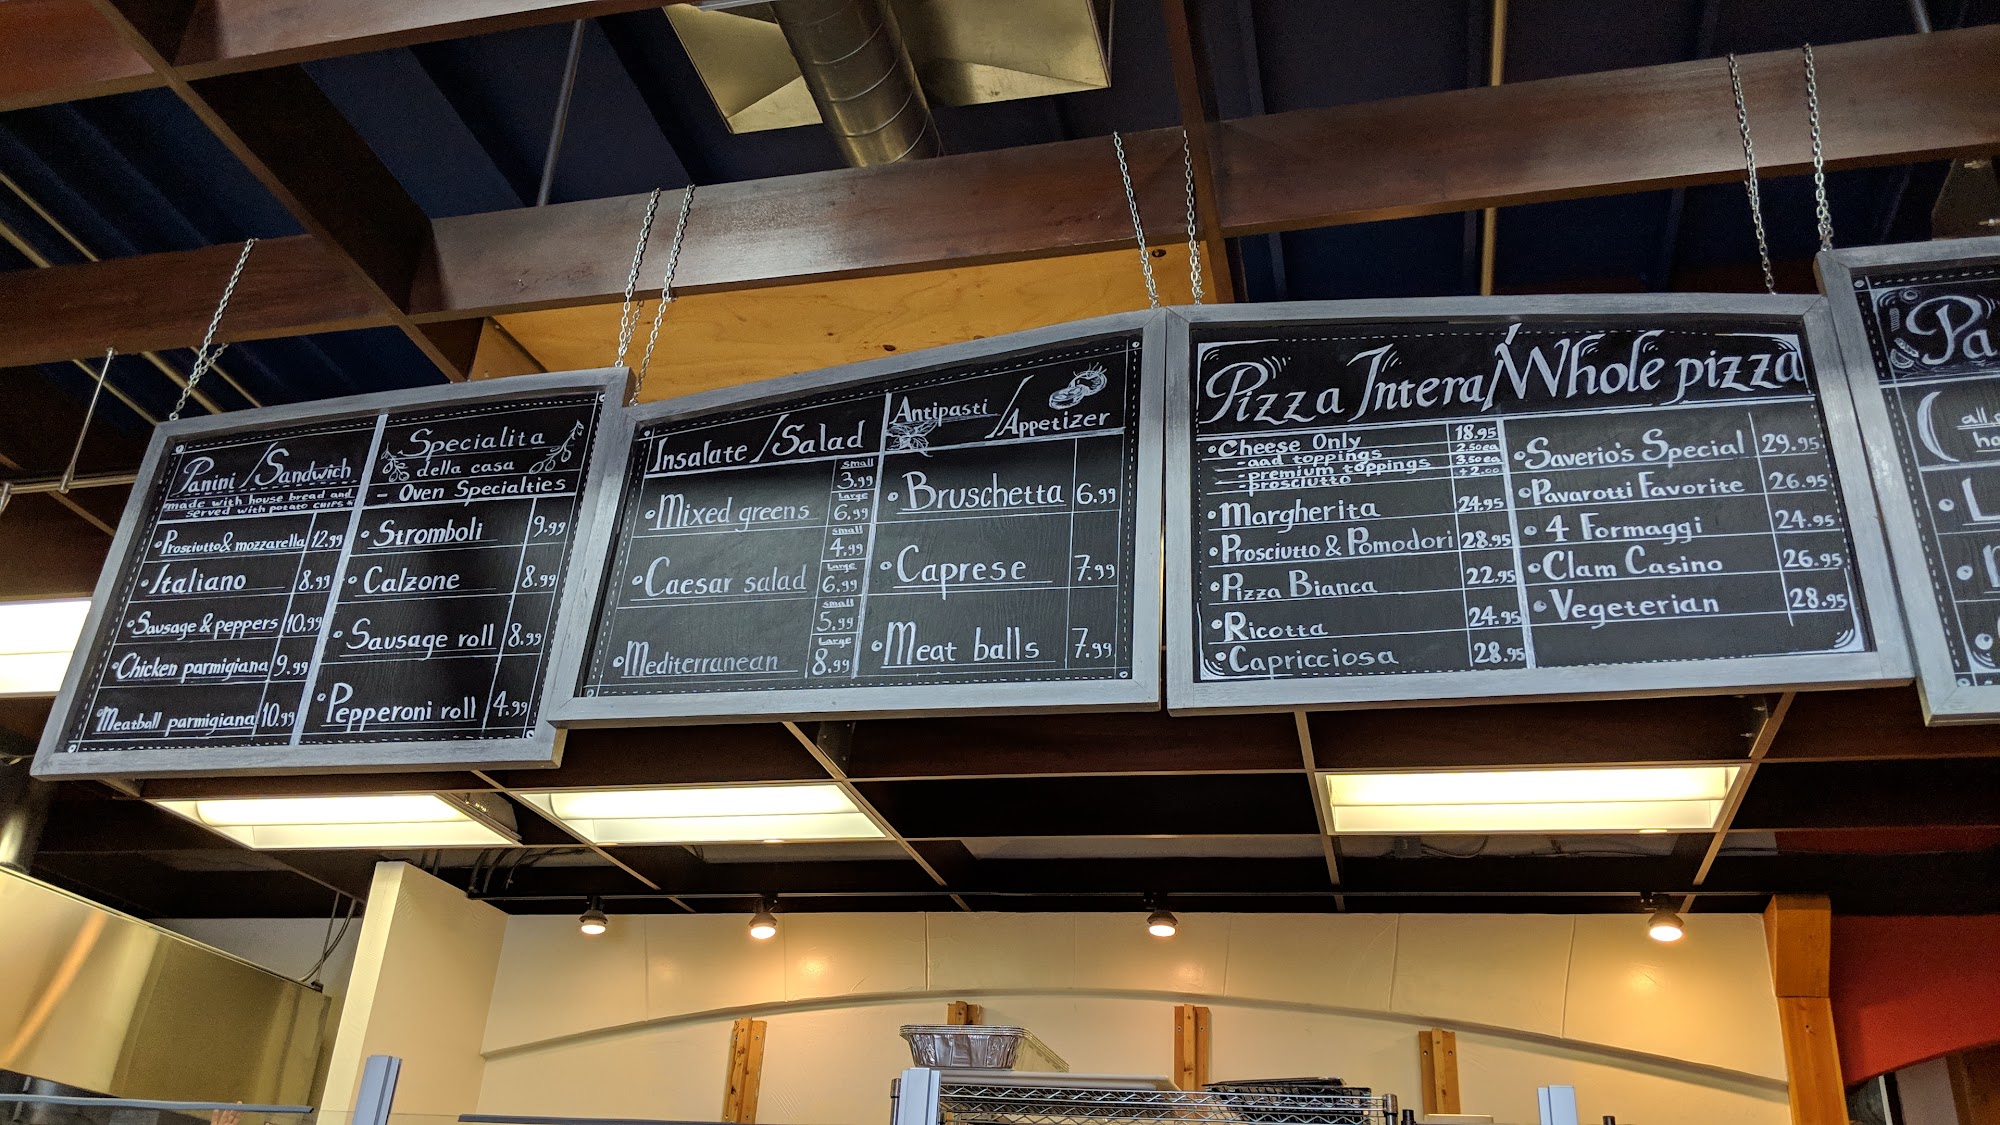 Panini / Sandwich
made with house bread and
served with potato chips *
Prosciutto & mozzarella 12.99
Italiano 8.99
Sausage & peppers 10.99
Chicken parmigiana 9.99
Meatball parmigiana 10.99
Specialita
della casa
- Oven Specialties
Stromboli 9.99
Calzone 8.99
Sausage roll 8.99
Pepperoni roll 4.99
Insalate / Salad
small
3.99
Large
Mixed greens 6.99
small
4.99
Large
Caesar salad 6.99
small
5.99
Large
Mediterranean 8.99
Antipasti
/ Appetizer
Bruschetta 6.99
Caprese 7.99
Meat balls 7.99
Pizza Intera / Whole pizza
Cheese Only 18.95
- add toppings 2.50ea
- premium toppings 3.50ea
- prosciutto +2.00
Margherita 24.95
Prosciutto & Pomodori 28.95
Pizza Bianca 22.95
Ricotta 24.95
Capricciosa 28.95
Saverio's Special 29.95
Pavarotti Favorite 26.95
4 Formaggi 24.95
Clam Casino 26.95
Vegeterian 28.95
Pa